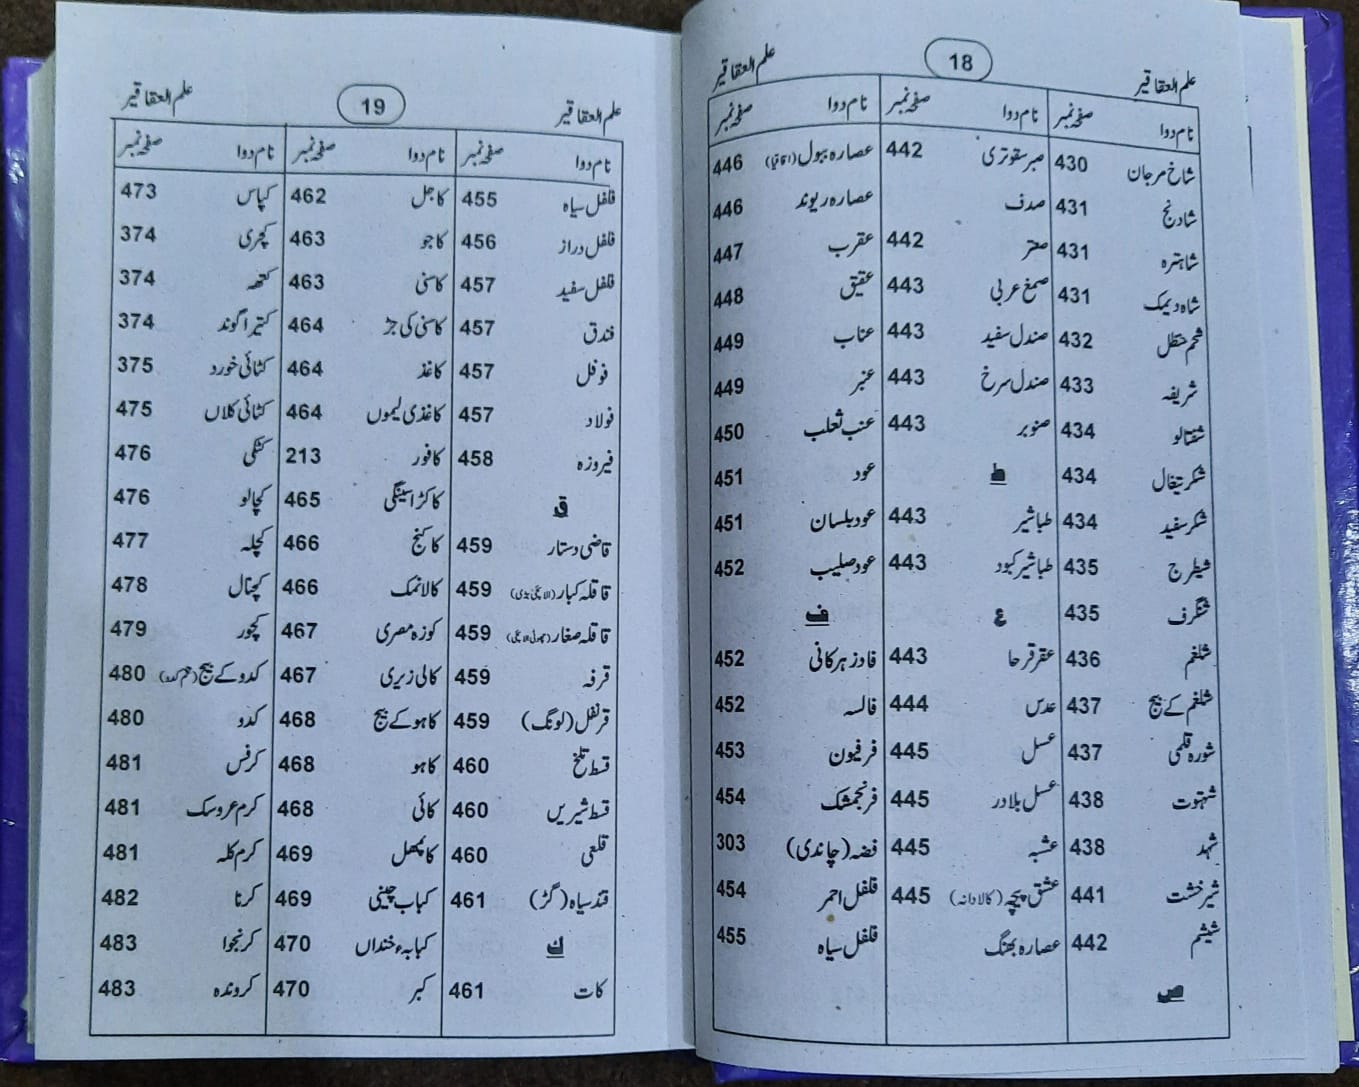 علم العقاقیر
18
علم العقاقیر
نام دوا صفحہ نمبر
شاخ مرجان 430
شادنج 431
شاہترہ 431
شاہ دیمک 431
شحم حنظل 432
شریفہ 433
شفتالو 434
شکر تیغال 434
شکر سفید 434
شیطرج 435
شنگرف 435
شلغم 436
شلغم کے بیج 437
شورہ قلمی 437
شہتوت 438
شہد 438
شیر خشت 441
شیشم 442
ص
نام دوا صفحہ نمبر
صبر سقوتری 442
صدف
صعتر 442
صمغ عربی 443
صندل سفید 443
صندل سرخ 443
صنوبر 443
ط
طباشیر 443
طباشیر کبود 443
ع
عقرقرحا 443
عدس 444
عسل 445
عسل بلادر 445
عشبہ 445
عشق پیچہ (کالا دانہ) 445
عصارہ بھنگ
نام دوا صفحہ نمبر
عصارہ ببول (اقاقیا) 446
عصارہ ریوند 446
عقرب 447
عقیق 448
عناب 449
عنبر 449
عنب ثعلب 450
عود 451
عود بلسان 451
عود صلیب 452
ف
فادزہر کانی 452
فالسہ 452
فرفیون 453
فرنجمشک 454
فضہ (چاندی) 303
فلفل احمر 454
فلفل سیاہ 455
علم العقاقیر
19
علم العقاقیر
نام دوا صفحہ نمبر
فلفل سیاہ 455
فلفل دراز 456
فلفل سفید 457
فندق 457
فوفل 457
فولاد 457
فیروزہ 458
ق
قاضی دستار 459
قاقلہ کبار (الائچی بڑی) 459
قاقلہ صغار (چھوٹی الائچی) 459
قرفہ 459
قرنفل (لونگ) 459
قسط تلخ 460
قسط شیریں 460
قلعی 460
قند سیاہ (گڑ) 461
ک
کات 461
نام دوا صفحہ نمبر
کاجل 462
کاجو 463
کاسنی 463
کاسنی کی جڑ 464
کاغذ 464
کاغذی لیموں 464
کافور 213
کاکڑاسینگی 465
کاکنج 466
کالا نمک 466
کوزہ مصری 467
کالی زیری 467
کاہو کے بیج 468
کاہو 468
کائی 468
کائپھل 469
کباب چینی 469
کبابہء خنداں 470
کبر 470
نام دوا صفحہ نمبر
کپاس 473
کچری 374
کتھہ 374
کتیرا گوند 374
کٹائی خورد 375
کٹائی کلاں 475
کٹکی 476
کچالو 476
کچلہ 477
کچنال 478
کچور 479
کدو کے بیج (تخم کدو) 480
کدو 480
کرفس 481
کرم عروسک 481
کرم کلہ 481
کرنا 482
کرنجوا 483
کروندہ 483